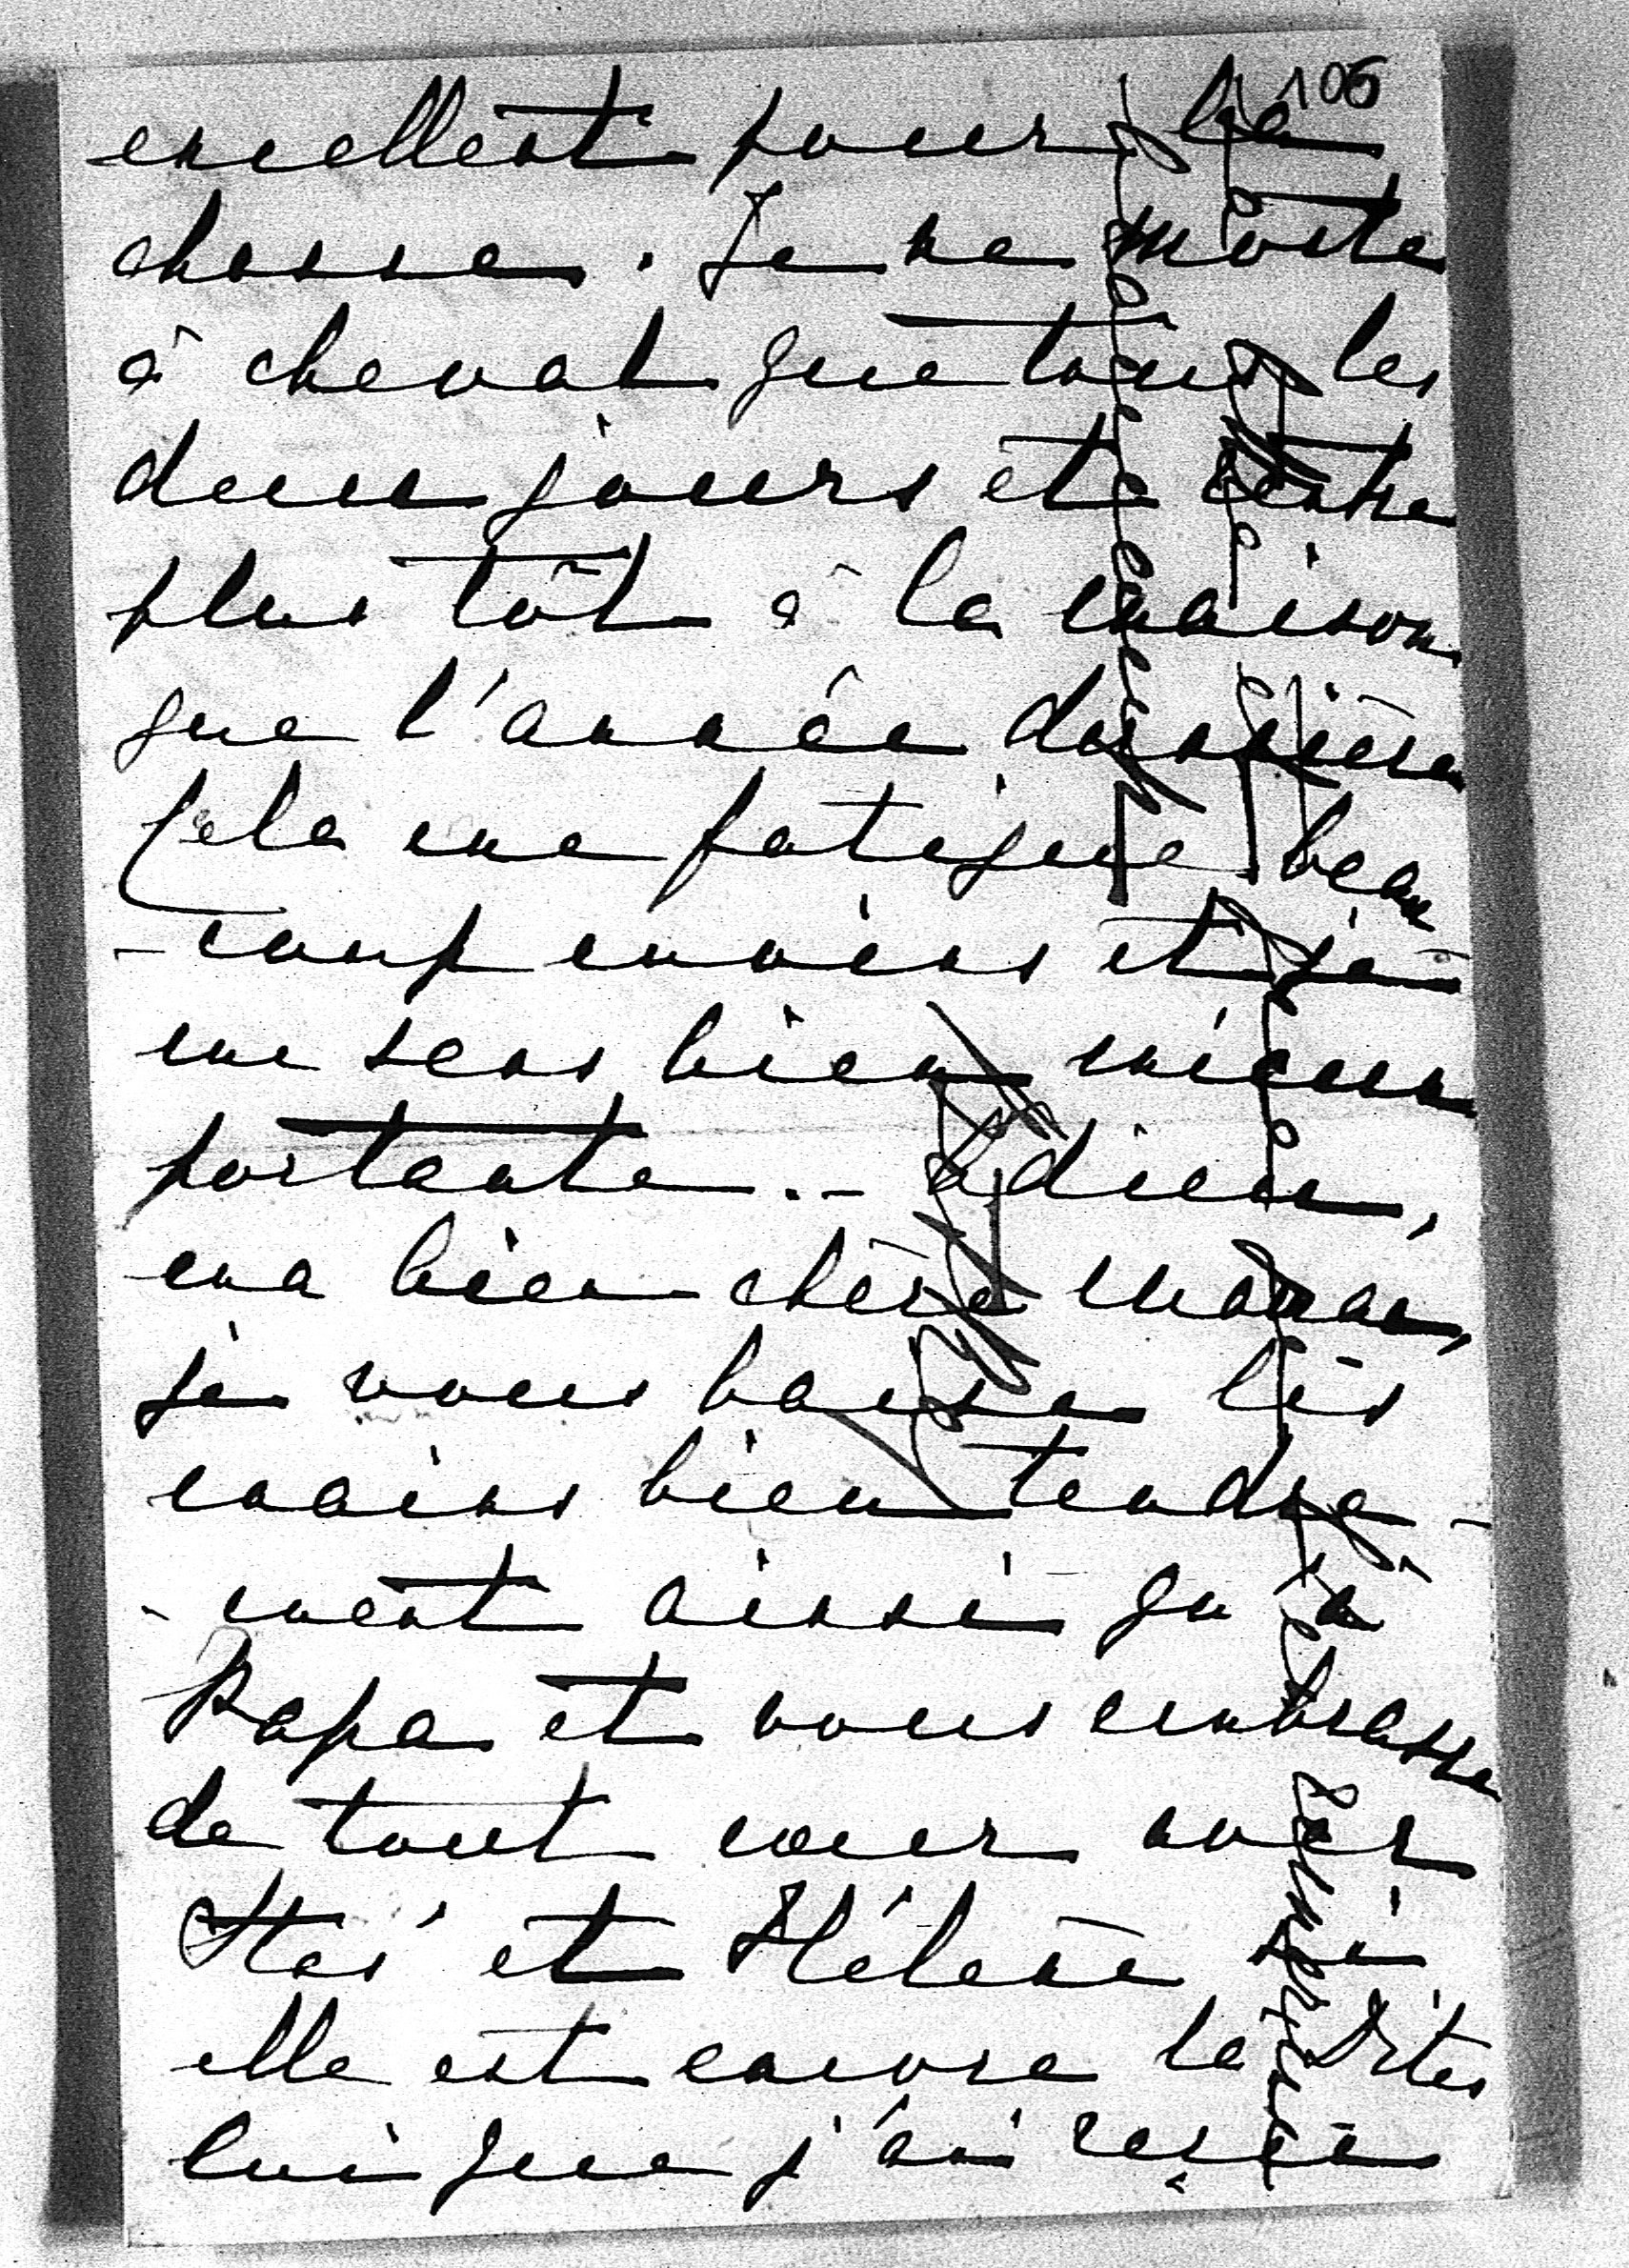 106
excellent pour la
chasse. Je ne monte
à cheval que tous les
deux jours et rentre
plus tôt à la maison
que l'année dernière
Cela me fatigue beau
-coup moins et je
me sens bien mieux
portante. - Adieu,
ma bien chère maman,
je vous baise les
mains bien tendre-
-ment ainsi qu'à
Papa et vous embrasse
de tout cœur avec
et Hélène si
elle est encore là Dites
lui que j'ai reçu